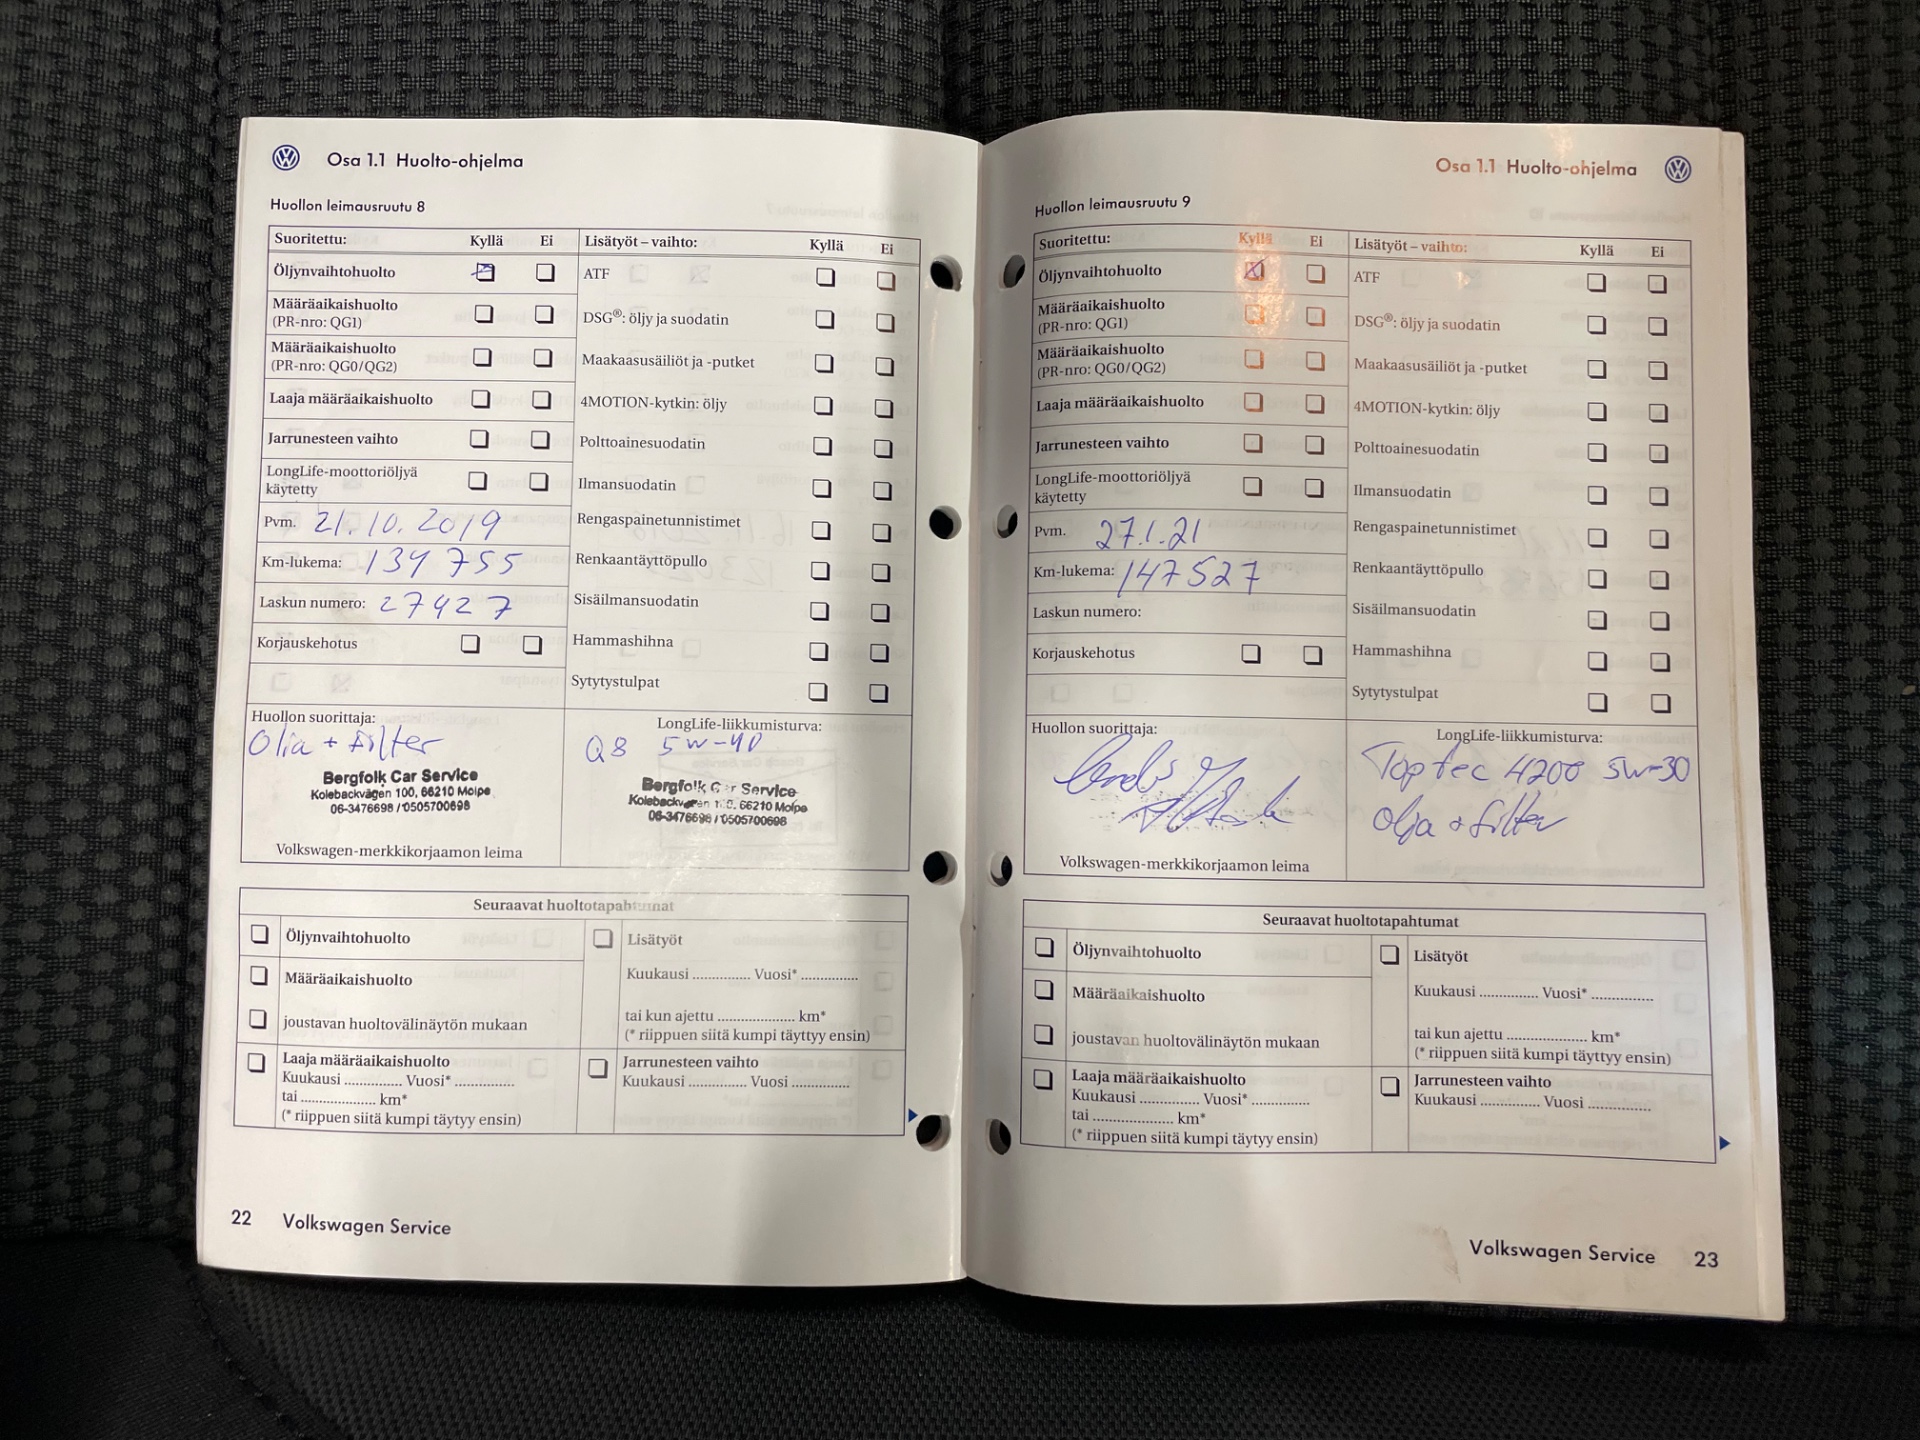 Osa 1.1 Huolto-ohjelma
Huollon leimausruutu 8
Suoritettu: Kyllä Ei
Öljynvaihtohuolto
Määräaikaishuolto
(PR-nro: QG1)
Määräaikaishuolto
(PR-nro: QG0/QG2)
Laaja määräaikaishuolto
Jarrunesteen vaihto
LongLife-moottoriöljyä
käytetty
Pvm. 21.10.2019
Km-lukema: 134 755
Laskun numero: 27427
Korjauskehotus
Lisätyöt – vaihto: Kyllä Ei
ATF
DSG®: öljy ja suodatin
Maakaasusäiliöt ja -putket
4MOTION-kytkin: öljy
Polttoainesuodatin
Ilmansuodatin
Rengaspainetunnistimet
Renkaantäyttöpullo
Sisäilmansuodatin
Hammashihna
Sytytystulpat
Huollon suorittaja:
Olja + filter
Bergfolk Car Service
Kolebackvägen 100, 66210 Molpe
06-3476698 / 0505700698
Volkswagen-merkkikorjaamon leima
LongLife-liikkumisturva:
Q8 5W-40
Bergfolk Car Service
Kolebackvägen 100, 66210 Molpe
06-3476698 / 0505700698
Seuraavat huoltotapahtumat
Öljynvaihtohuolto
Määräaikaishuolto
joustavan huoltovälinäytön mukaan
Laaja määräaikaishuolto
Kuukausi .............. Vuosi* ..............
tai .................. km*
(* riippuen siitä kumpi täytyy ensin)
Lisätyöt
Kuukausi .............. Vuosi* ..............
tai kun ajettu .................. km*
(* riippuen siitä kumpi täyttyy ensin)
Jarrunesteen vaihto
Kuukausi .............. Vuosi ..............
22 Volkswagen Service
Osa 1.1 Huolto-ohjelma
Huollon leimausruutu 9
Suoritettu: Kyllä Ei
Öljynvaihtohuolto
Määräaikaishuolto
(PR-nro: QG1)
Määräaikaishuolto
(PR-nro: QG0/QG2)
Laaja määräaikaishuolto
Jarrunesteen vaihto
LongLife-moottoriöljyä
käytetty
Pvm. 27.1.21
Km-lukema: 147527
Laskun numero:
Korjauskehotus
Lisätyöt – vaihto: Kyllä Ei
ATF
DSG®: öljy ja suodatin
Maakaasusäiliöt ja -putket
4MOTION-kytkin: öljy
Polttoainesuodatin
Ilmansuodatin
Rengaspainetunnistimet
Renkaantäyttöpullo
Sisäilmansuodatin
Hammashihna
Sytytystulpat
Huollon suorittaja:
Volkswagen-merkkikorjaamon leima
LongLife-liikkumisturva:
Toptec 4200 5W-30
Olja + filter
Seuraavat huoltotapahtumat
Öljynvaihtohuolto
Määräaikaishuolto
joustavan huoltovälinäytön mukaan
Laaja määräaikaishuolto
Kuukausi .............. Vuosi* ..............
tai .................. km*
(* riippuen siitä kumpi täytyy ensin)
Lisätyöt
Kuukausi .............. Vuosi* ..............
tai kun ajettu .................. km*
(* riippuen siitä kumpi täyttyy ensin)
Jarrunesteen vaihto
Kuukausi .............. Vuosi ..............
Volkswagen Service 23